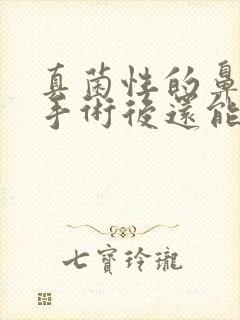 真菌性的鼻
手術後還能
七寶玲瓏